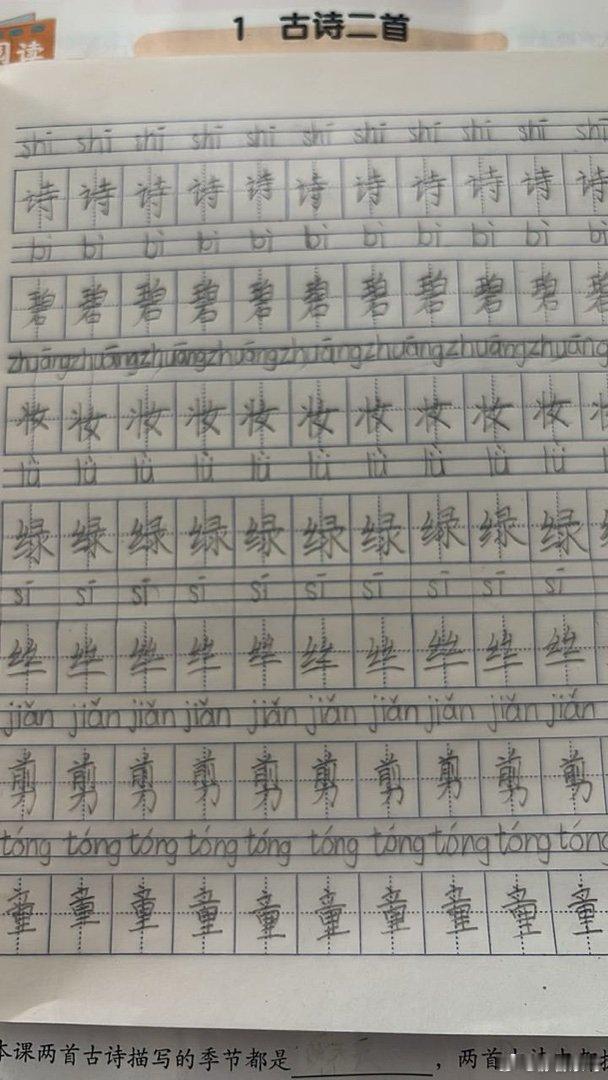 1 古诗二首
阅读
shī shī shī shī shī shī shī shī shī shī shī
诗 诗 诗 诗 诗 诗 诗 诗 诗 诗 诗
bì bì bì bì bì bì bì bì bì bì bì
碧 碧 碧 碧 碧 碧 碧 碧 碧 碧 碧
zhuāng zhuāng zhuāng zhuāng zhuāng zhuāng zhuāng zhuāng
妆 妆 妆 妆 妆 妆 妆 妆 妆 妆
lǜ lǜ lǜ lǜ lǜ lǜ lǜ lǜ lǜ lǜ
绿 绿 绿 绿 绿 绿 绿 绿 绿 绿
sī sī sī sī sī sī sī sī sī sī
丝 丝 丝 丝 丝 丝 丝 丝 丝 丝
jiǎn jiǎn jiǎn jiǎn jiǎn jiǎn jiǎn jiǎn jiǎn jiǎn
剪 剪 剪 剪 剪 剪 剪 剪 剪 剪
tóng tóng tóng tóng tóng tóng tóng tóng tóng tóng
童 童 童 童 童 童 童 童 童 童
本课两首古诗描写的季节都是 ，两首